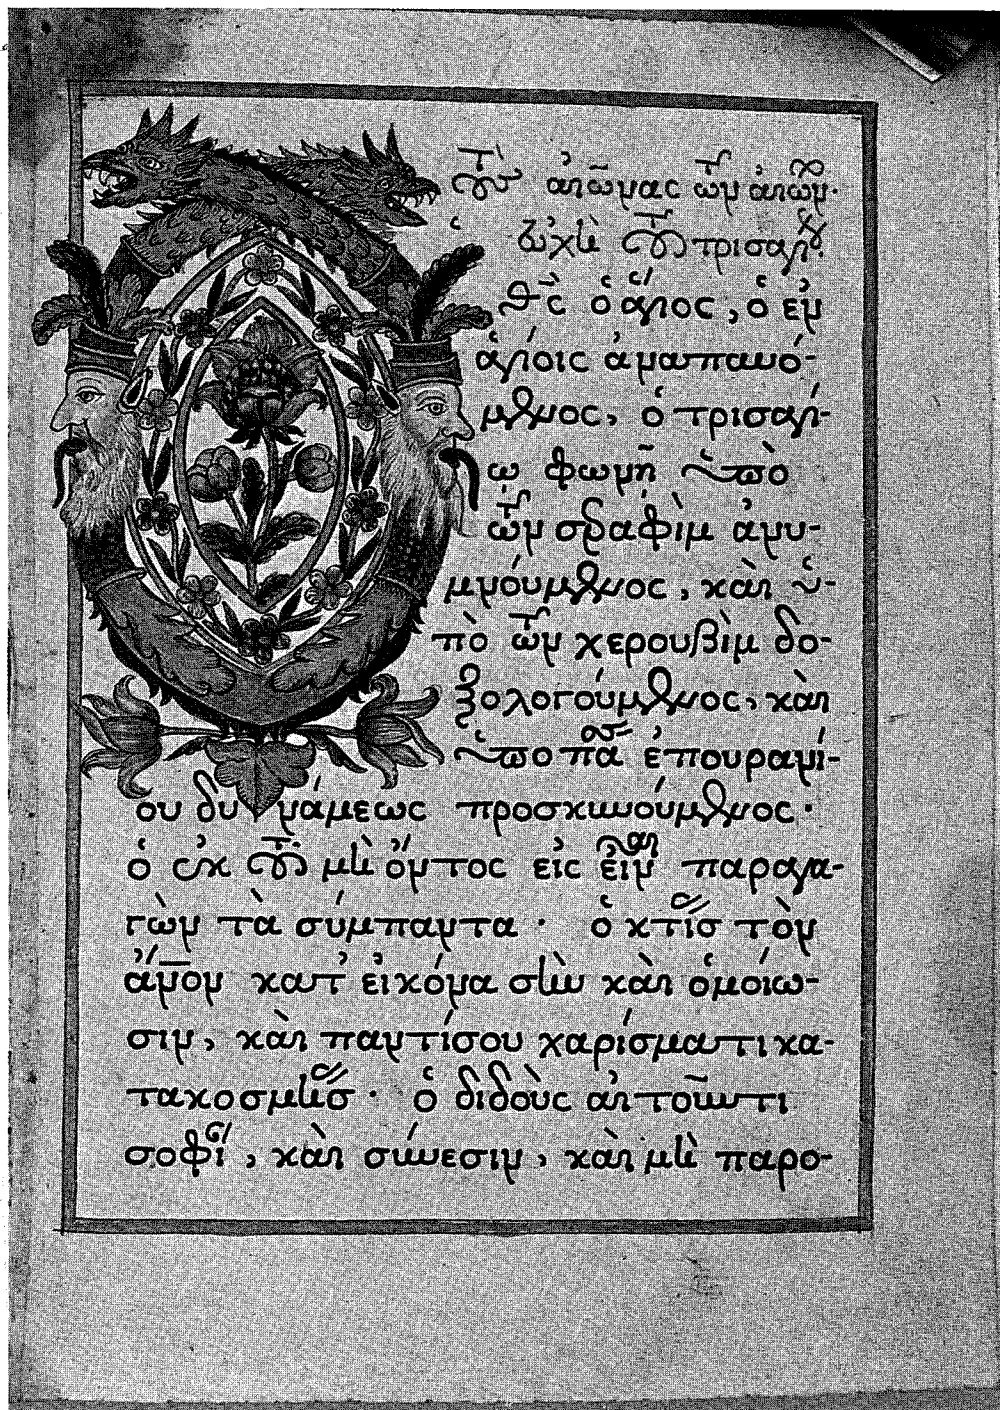 τοὺς αἰῶνας τῶν αἰώνων·
εὐχὴ τοῦ τρισαγίου.
Ὁ θς ὁ ἅγιος, ὁ ἐν
ἁγίοις ἀναπαυό-
μενος, ὁ τρισαγί-
ω φωνῆ ὑπὸ
τῶν σεραφὶμ ἀνυ-
μνούμενος, καὶ ὑ-
πὸ τῶν χερουβὶμ δο-
ξολογούμενος, καὶ
ὑπὸ πάσης ἐπουρανί-
ου δυνάμεως προσκυνούμενος·
ὁ ἐκ τοῦ μὴ ὄντος εἰς εἶναι παραγα-
γὼν τὰ σύμπαντα· ὁ κτίσας τὸν
ἄνον κατ' εἰκόνα σὴν καὶ ὁμοίω-
σιν, καὶ παντίσου χαρίσματι κα-
τακοσμήσας· ὁ διδοὺς αἰτοῦντι
σοφίαν, καὶ σύνεσιν, καὶ μὴ παρο-